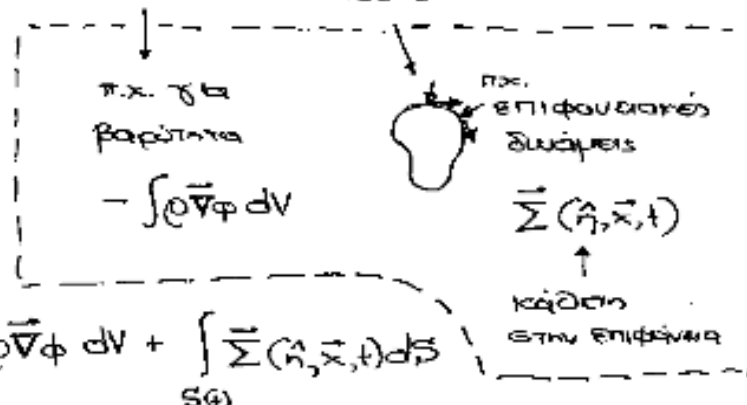 π.χ. για
βαρύτητα
− ∫ρ∇⃗φ dV
π.χ.
επιφανειακές
δυνάμεις
Σ⃗(n̂,x⃗,t)
κάθετη
στην επιφάνεια
ρ∇⃗φ dV + ∫ Σ⃗(n̂,x⃗,t)dS
S(t)